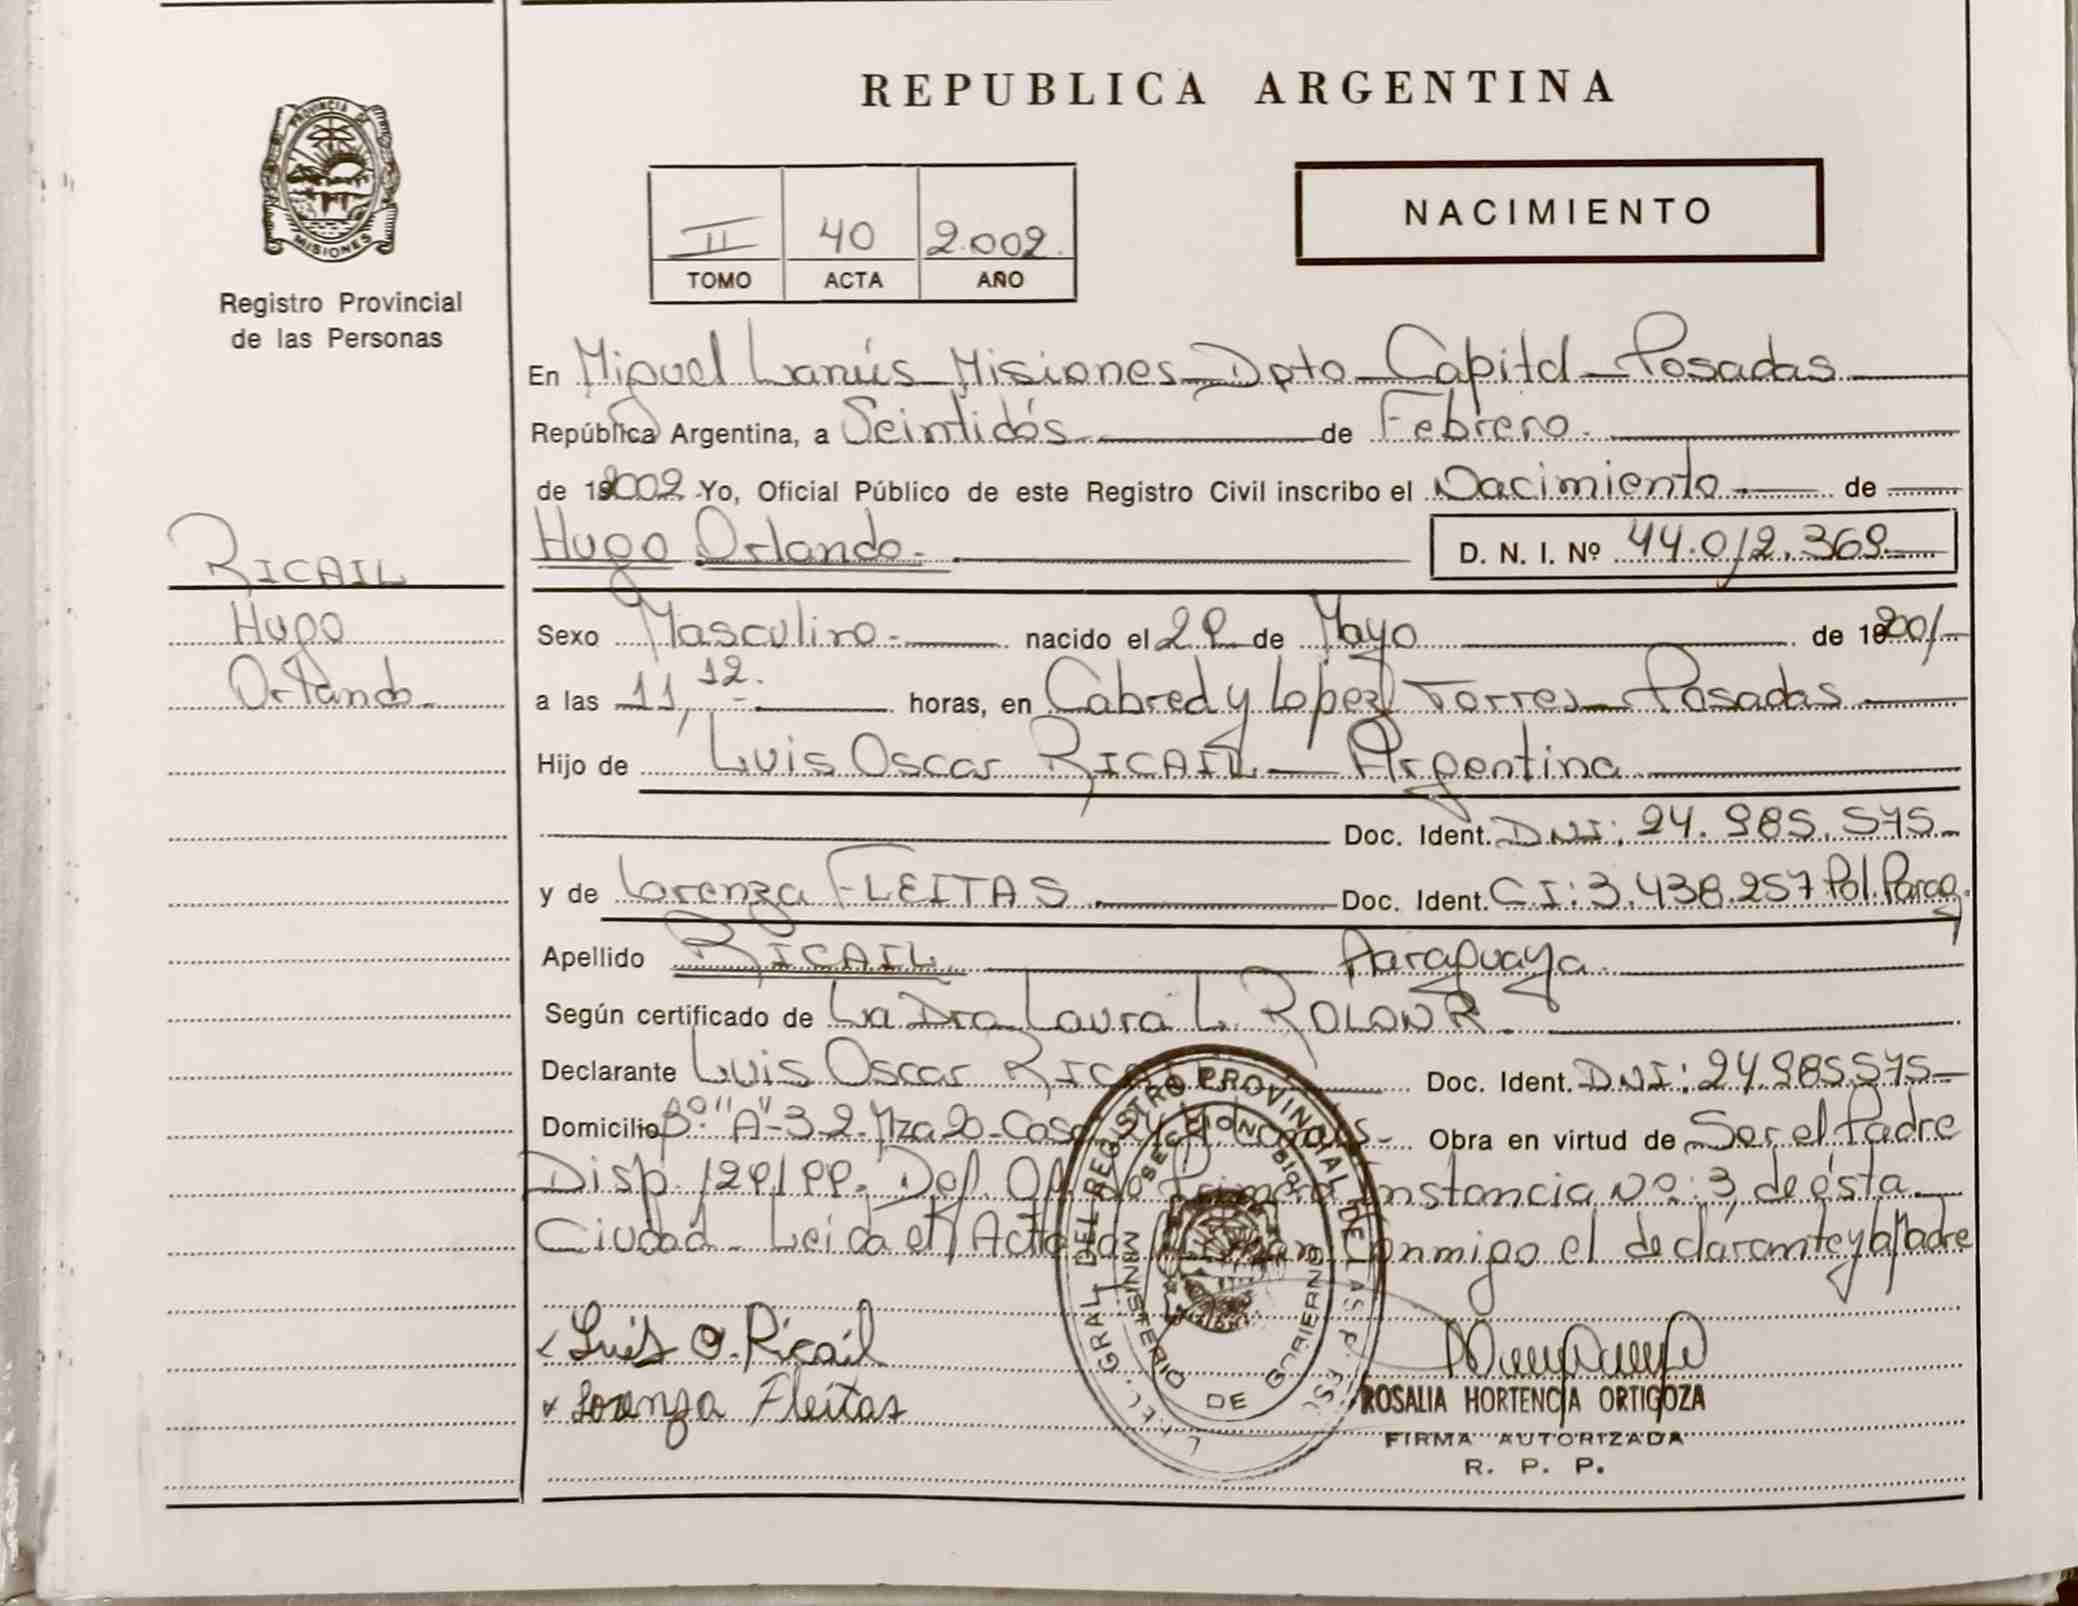 REPUBLICA ARGENTINA
PROVINCIA DE
MISIONES
Registro Provincial
de las Personas
II 40 2.002.
TOMO ACTA AÑO
NACIMIENTO
En Miguel Lanús Misiones Dpto Capital Posadas
República Argentina, a Veintidós de Febrero.
de 2002 Yo, Oficial Público de este Registro Civil inscribo el Nacimiento de
Hugo Orlando. D. N. I. Nº 44.012.369
RICAIL
Hugo
Orlando.
Sexo Masculino nacido el 29 de Mayo de 2001
a las 11,12. horas, en Cabred y Lopez Torres Posadas
Hijo de Luis Oscar RICAIL Argentina
Doc. Ident. DNI: 24.985.575
y de Lorenza FLEITAS Doc. Ident. CI: 3.438.257 Pol. Parag.
Apellido RICAIL Paraguaya.
Según certificado de La Dra Laura L.
Declarante Luis Oscar Doc. Ident. DNI: 24.985.575
Domicilio Bº "A"-3.2. Mza 20 Casa Obra en virtud de Ser el Padre
Disp. 129/99. Def. Of. Primera Instancia Nº: 3, de ésta
Ciudad Leida el Acta conmigo el declarante y la Madre
Luis O. Ricail
Lorenza Fleitas
ROSALIA HORTENCIA ORTIGOZA
FIRMA AUTORIZADA
R. P. P.
GRAL DEL REGISTRO PROVINCIAL DE LAS
MINISTERIO DE GOBIERNO